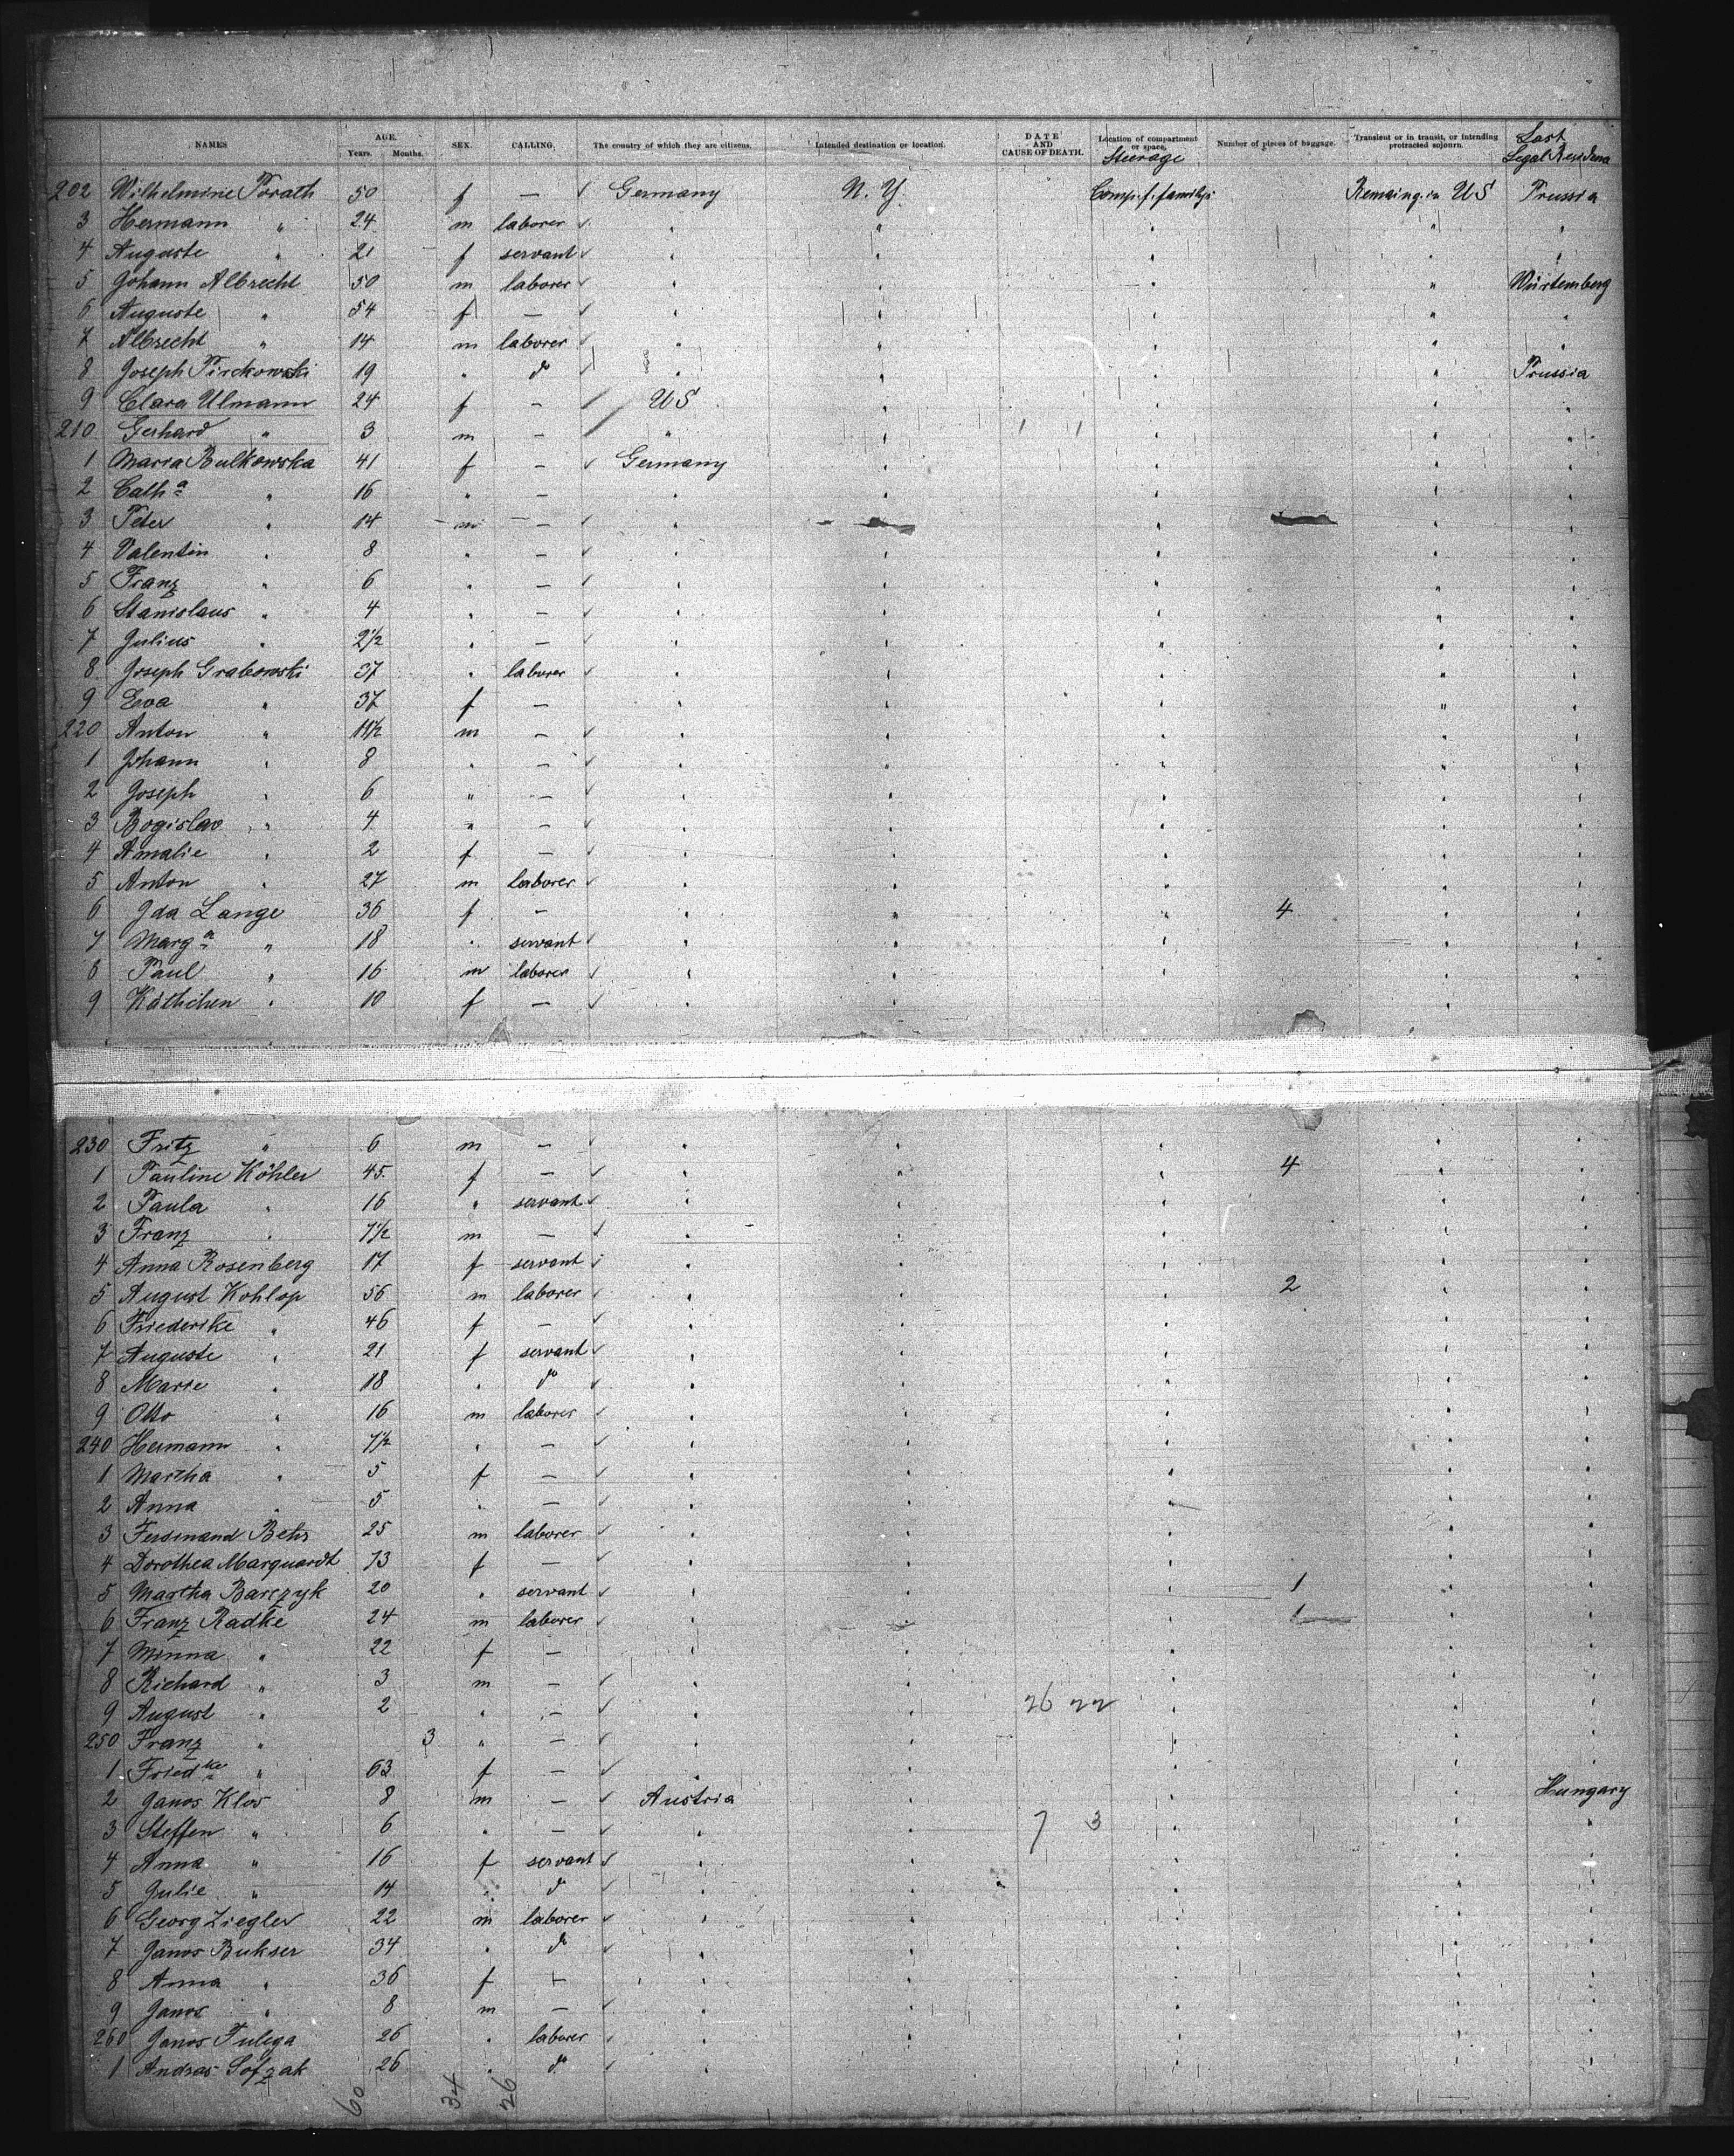 NAMES AGE. Years. Months. SEX. CALLING. The country of which they are citizens. Intended destination or location. DATE AND CAUSE OF DEATH. Location of compartment or space. Steerage Number of pieces of baggage. Transient or in transit, or intending protracted sojourn. Last Legal Residence
202 Wilhelmine Porath 50 f — ✓ Germany N. Y. Comp. f. familys Remaing. in US Prussia
3 Hermann " 24 m laborer ✓ " " " " "
4 Auguste " 21 f servant ✓ " " " " "
5 Johann Albrecht 50 m laborer ✓ " " " " Würtemberg
6 Auguste " 54 f — ✓ " " " " "
7 Albrecht " 14 m laborer ✓ " " " " "
8 Joseph Pirckowski 19 " do ✓ " " " " Prussia
9 Clara Ulmann 24 f — / US " " " "
210 Gerhard " 3 m — / " " " " "
1 Maria Bulkowska 41 f — ✓ Germany " " " "
2 Catha " 16 " — " " " " "
3 Peter " 14 m — ✓ " " " " "
4 Valentin " 8 " — ✓ " " " " "
5 Franz " 6 " — ✓ " " " " "
6 Stanislaus " 4 " — ✓ " " " " "
7 Julius " 2½ " — ✓ " " " " "
8 Joseph Grabowski 37 " laborer ✓ " " " " "
9 Eva " 37 f — " " " " "
220 Anton " 11½ m — ✓ " " " " "
1 Johann " 8 " — ✓ " " " " "
2 Joseph " 6 " — ✓ " " " " "
3 Bogislav " 4 " — ✓ " " " " "
4 Amalie " 2 f — ✓ " " " " "
5 Anton " 27 m laborer ✓ " " " " "
6 Ida Lange 36 f — " " " 4 " "
7 Marga " 18 " servant ✓ " " " " "
8 Paul " 16 m laborer ✓ " " " " "
9 Käthchen " 10 f — ✓ " " " " "
230 Fritz " 6 m — ✓ " " " " "
1 Pauline Köhler 45 f — ✓ " " " 4 " "
2 Paula " 16 " servant ✓ " " " " "
3 Franz " 7½ m — ✓ " " " " "
4 Anna Rosenberg 17 f servant ✓ " " " " "
5 August Kohlop 56 m laborer ✓ " " " 2 " "
6 Friederike " 46 f — ✓ " " " " "
7 Auguste " 21 f servant ✓ " " " " "
8 Marie " 18 " do ✓ " " " " "
9 Otto " 16 m laborer ✓ " " " " "
240 Hermann " 7½ " — ✓ " " " " "
1 Martha " 5 f — ✓ " " " " "
2 Anna " 5 " — ✓ " " " " "
3 Ferdinand Behr 25 m laborer ✓ " " " " "
4 Dorothea Marquardt 73 f — ✓ " " " " "
5 Martha Barczyk 20 " servant ✓ " " " 1 " "
6 Franz Radke 24 m laborer ✓ " " " 1 " "
7 Minna " 22 f — " " " " "
8 Richard " 3 m — ✓ " " " " "
9 August " 2 " — ✓ " " 26 22 " " "
250 Franz " 3 " — ✓ " " " " "
1 Friedke " 63 f — ✓ " " " " "
2 Janos Klos 8 m — ✓ Austria " " " Hungary
3 Steffen " 6 " — ✓ " " 7 3 " " "
4 Anna " 16 f servant ✓ " " " " "
5 Julie " 14 " do ✓ " " " " "
6 Georg Ziegler 22 m laborer ✓ " " " " "
7 Janos Bukser 34 " do ✓ " " " " "
8 Anna " 36 f — " " " " "
9 Janos " 8 m — ✓ " " " " "
260 Janos Tulega 26 " laborer ✓ " " " " "
1 Andras Sofzak 26 " do ✓ " " " " "
60 34 26